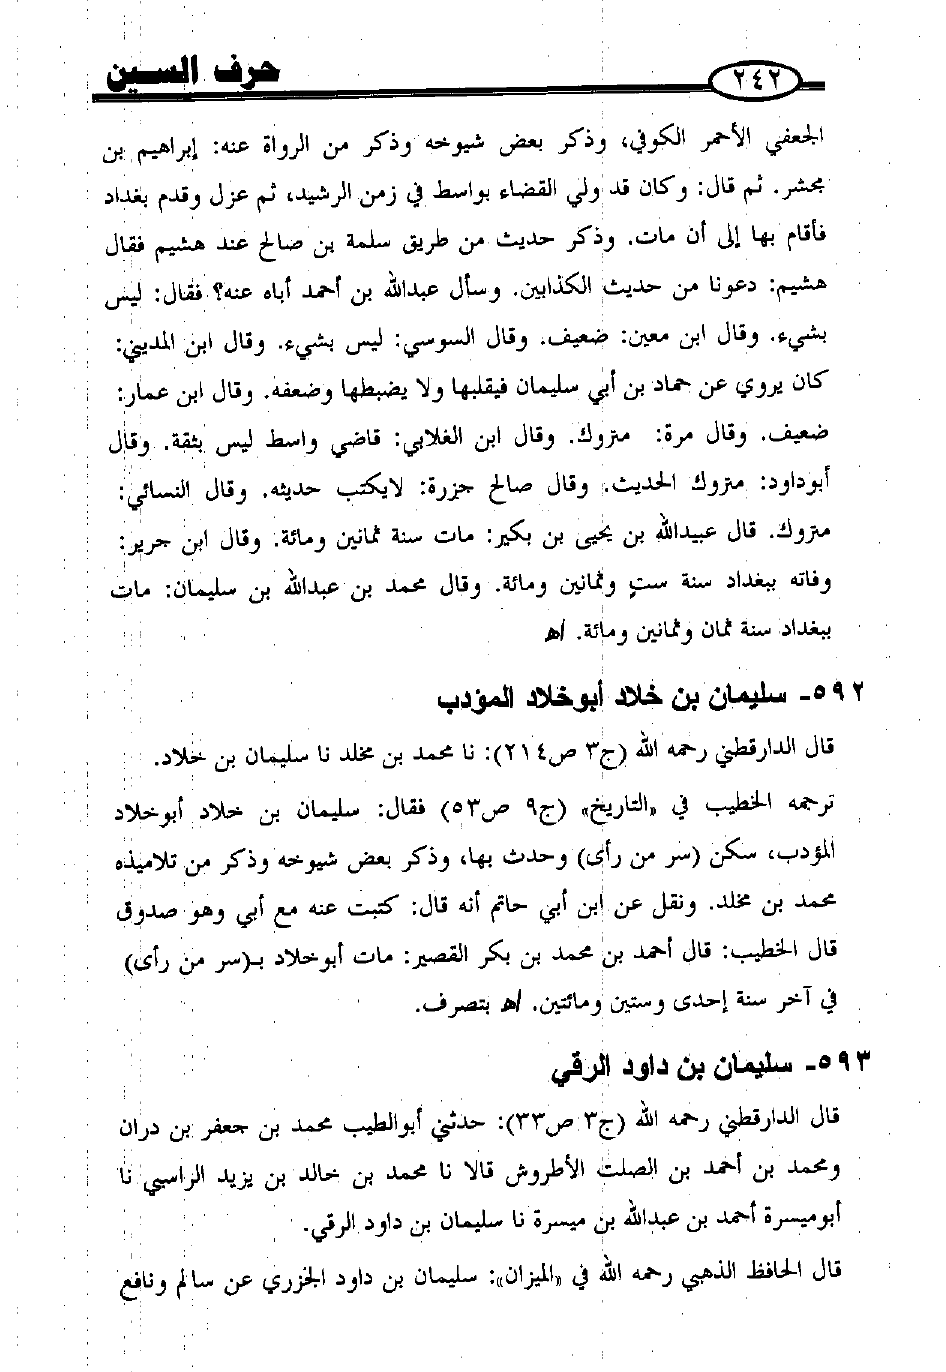 ٢٤٢ حرف السين
الجعفي الأحمر الكوفي، وذكر بعض شيوخه وذكر من الرواة عنه: إبراهيم بن
مجشر. ثم قال: وكان قد ولي القضاء بواسط في زمن الرشيد، ثم عزل وقدم بغداد
فأقام بها إلى أن مات. وذكر حديث من طريق سلمة بن صالح عند هشيم فقال
هشيم: دعونا من حديث الكذابين. وسأل عبدالله بن أحمد أباه عنه؟ فقال: ليس
بشيء. وقال ابن معين: ضعيف. وقال السوسي: ليس بشيء. وقال ابن المديني:
كان يروي عن حماد بن أبي سليمان فيقلبها ولا يضبطها وضعفه. وقال ابن عمار:
ضعيف. وقال مرة: متروك. وقال ابن الغلابي: قاضي واسط ليس بثقة. وقال
أبوداود: متروك الحديث. وقال صالح جزرة: لايكتب حديثه. وقال النسائي:
متروك. قال عبيدالله بن يحيى بن بكير: مات سنة ثمانين ومائة. وقال ابن جرير:
وفاته ببغداد سنة ستٍ وثمانين ومائة. وقال محمد بن عبدالله بن سليمان: مات
ببغداد سنة ثمان وثمانين ومائة. اهـ
٥٩٢- سليمان بن خلاد أبوخلاد المؤدب
قال الدارقطني رحمه الله (ج٣ ص٢١٤): نا محمد بن مخلد نا سليمان بن خلاد.
ترجمه الخطيب في «التاريخ» (ج٩ ص٥٣) فقال: سليمان بن خلاد أبوخلاد
المؤدب، سكن (سر من رأى) وحدث بها، وذكر بعض شيوخه وذكر من تلاميذه
محمد بن مخلد. ونقل عن ابن أبي حاتم أنه قال: كتبت عنه مع أبي وهو صدوق
قال الخطيب: قال أحمد بن محمد بن بكر القصير: مات أبوخلاد بـ(سر من رأى)
في آخر سنة إحدى وستين ومائتين. اهـ بتصرف.
٥٩٣- سليمان بن داود الرقي
قال الدارقطني رحمه الله (ج٣ ص٣٣): حدثني أبوالطيب محمد بن جعفر بن دران
ومحمد بن أحمد بن الصلت الأطروش قالا نا محمد بن خالد بن يزيد الراسبي نا
أبوميسرة أحمد بن عبدالله بن ميسرة نا سليمان بن داود الرقي.
قال الحافظ الذهبي رحمه الله في «الميزان»: سليمان بن داود الجزري عن سالم ونافع